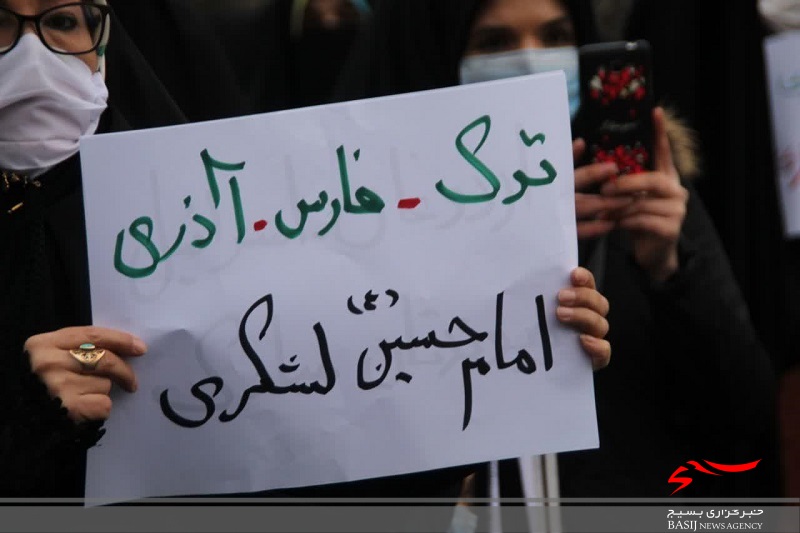 ترک - فارس - آذری
امام حسین (ع) لشگری
خبرگزاری بسیج
BASIJ NEWS AGENCY